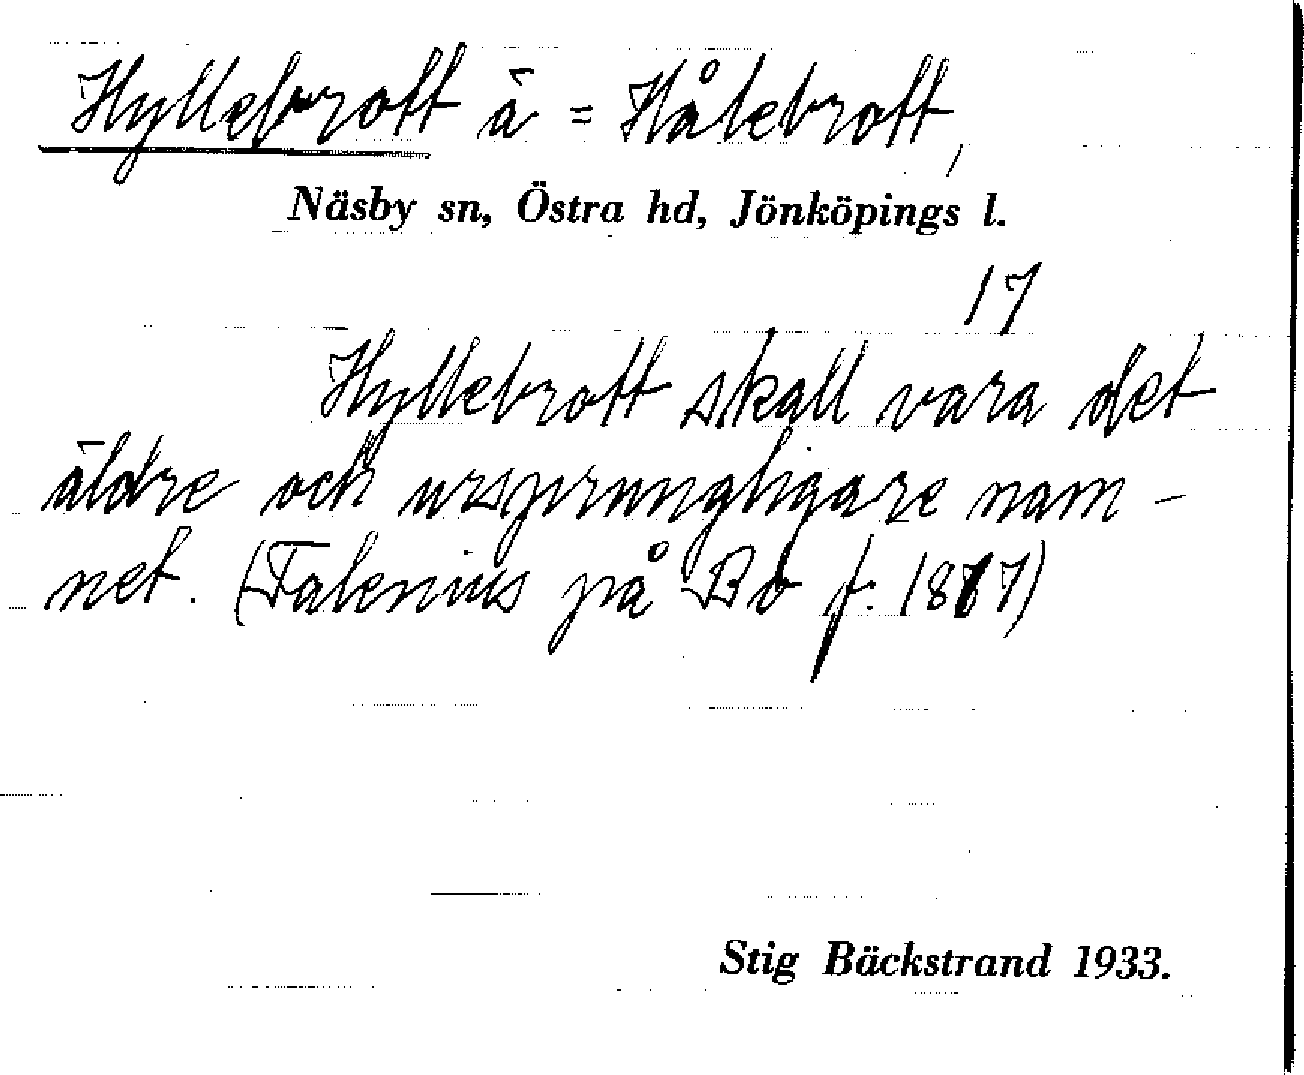 Hyllebrott å = Hålebrott,
Näsby sn, Östra hd, Jönköpings l.
17
Hyllebrott skall vara det
äldre och ursprungligare nam-
net. (Falenius på Bo f. 1877)
Stig Bäckstrand 1933.